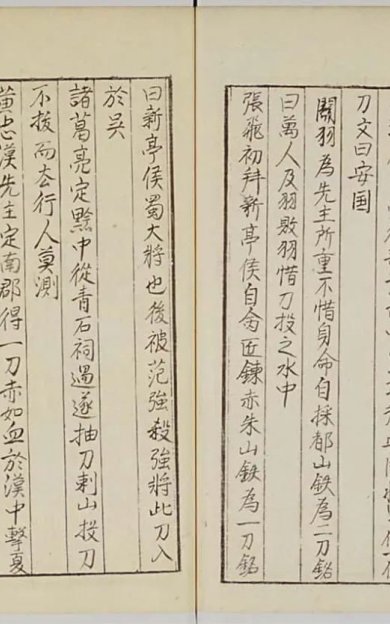 刀文曰安国
關羽為先主所重不惜身命自採都山鉄為二刀銘
曰萬人及羽敗羽惜刀投之水中
張飛初拜新亭侯自命匠鍊赤朱山鉄為一刀銘
曰新亭侯蜀大將也後被范強殺強將此刀入
於吴
諸葛亮定黔中從青石祠過遂抽刀刺山投刀
不拔而去行人莫測
黄忠漢先主定南郡得一刀赤如血於漢中擊夏